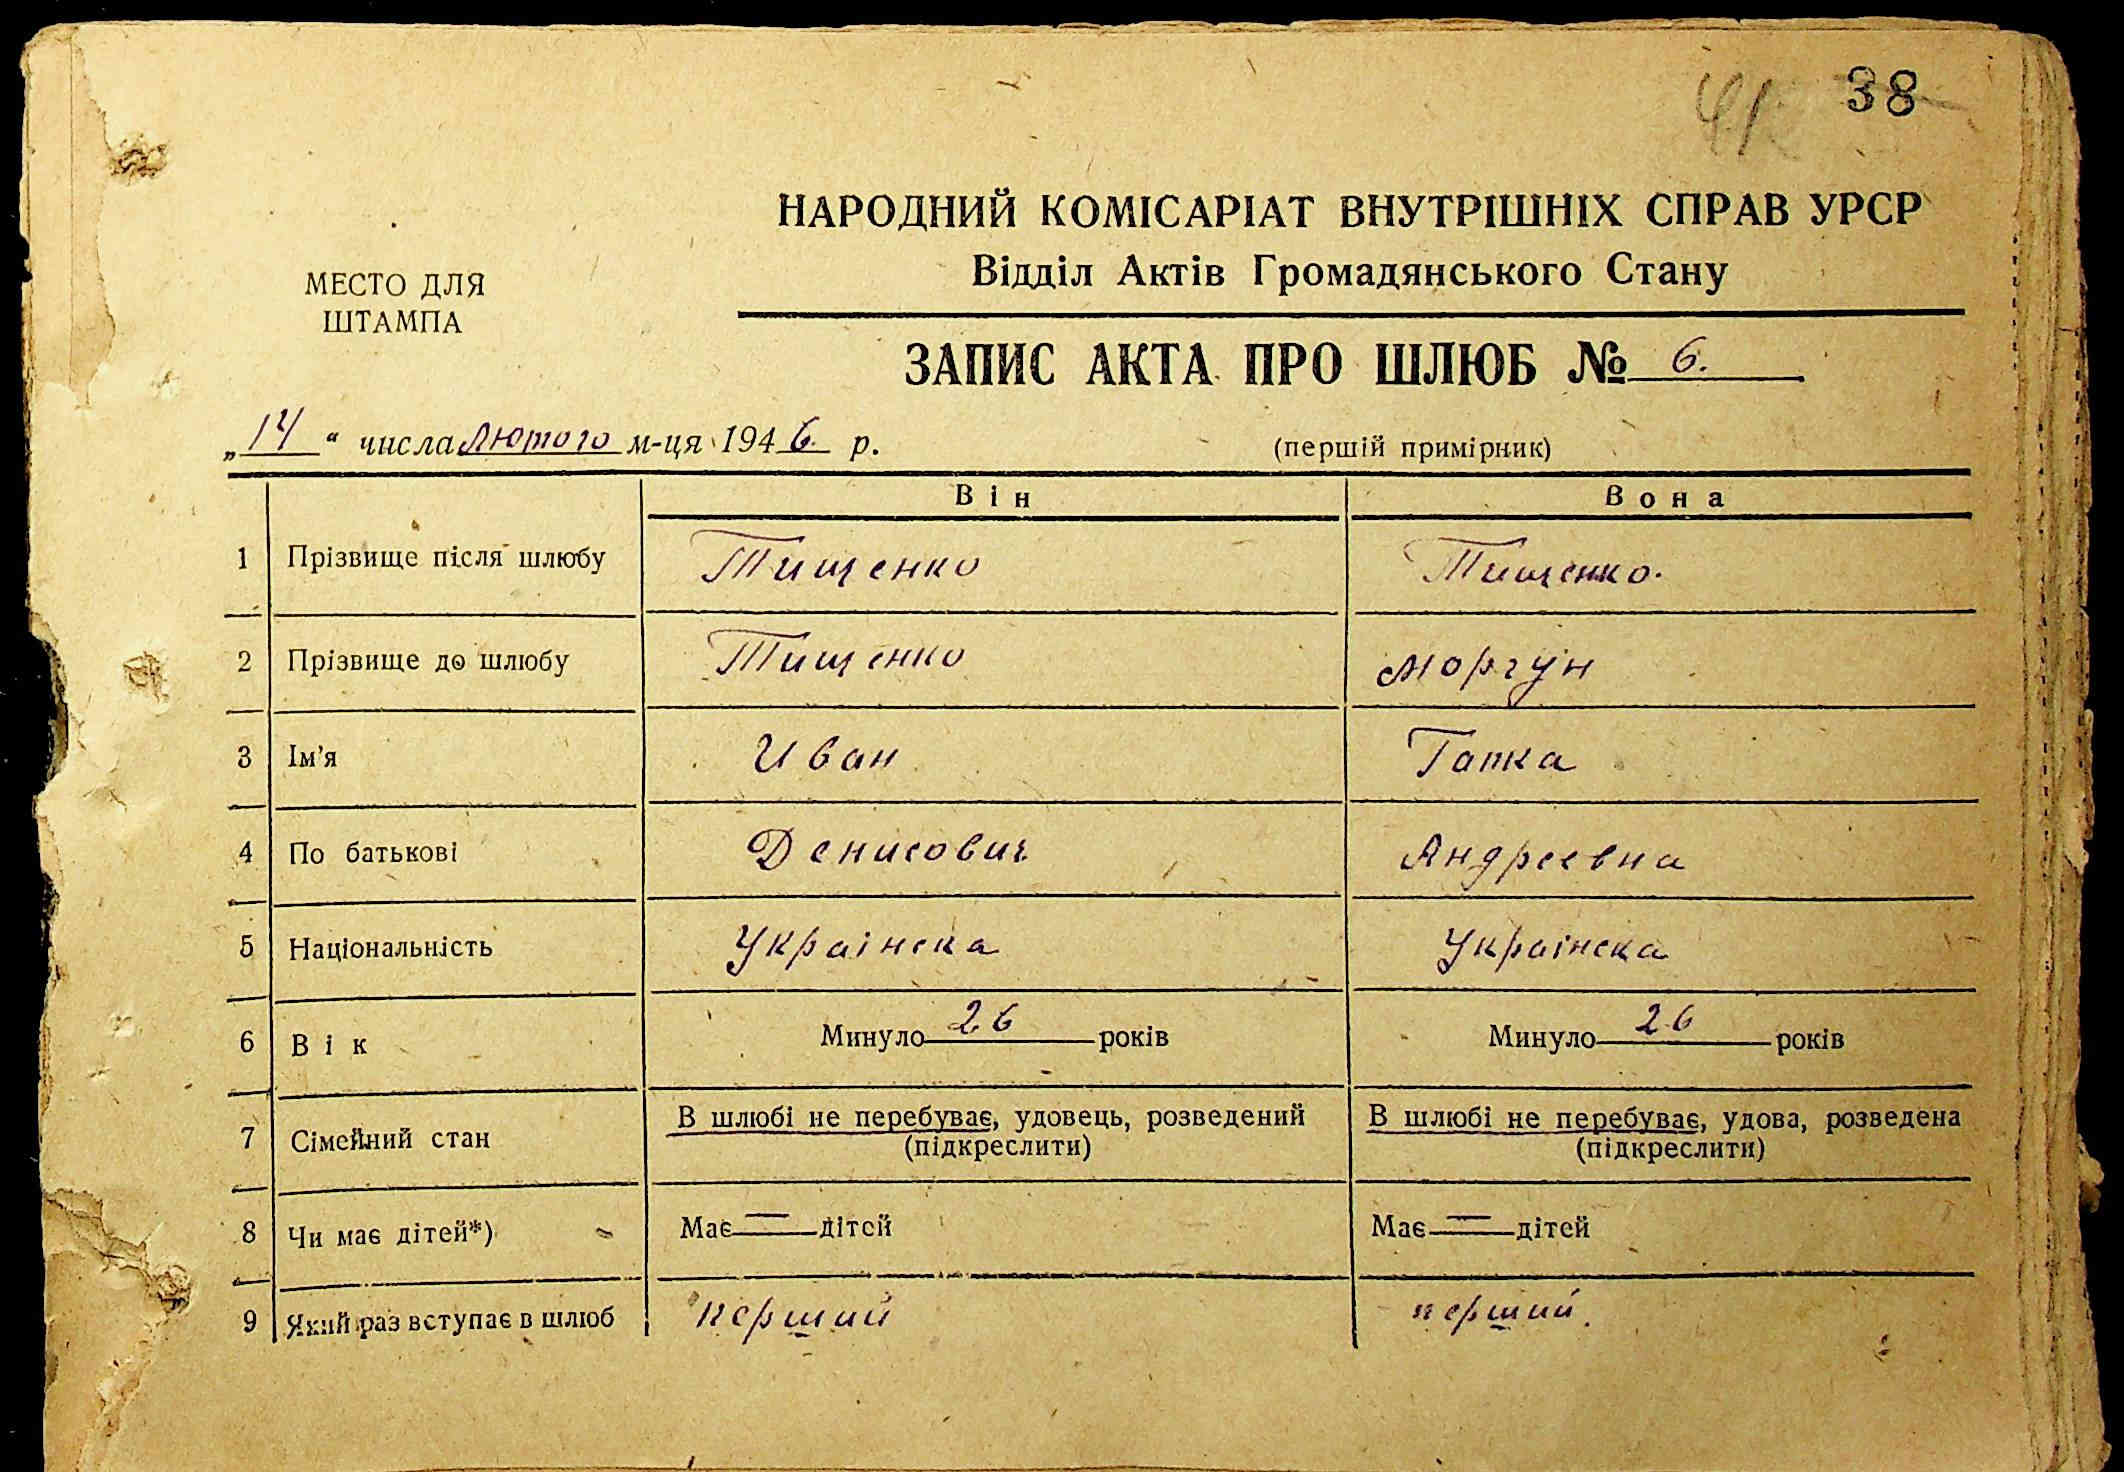 41 38
НАРОДНИЙ КОМІСАРІАТ ВНУТРІШНІХ СПРАВ УРСР
Відділ Актів Громадянського Стану
МЕСТО ДЛЯ
ШТАМПА
ЗАПИС АКТА ПРО ШЛЮБ № 6.
„14“ числа Лютого м-ця 1946 р. (першій примірник)
Він Вона
1 Прізвище після шлюбу Тищенко Тищенко.
2 Прізвище до шлюбу Тищенко Моргун
3 Ім'я Иван Гапка
4 По батькові Денисович Андреевна
5 Національність Українска Українска
6 Вік Минуло 26 років Минуло 26 років
7 Сімейний стан В шлюбі не перебуває, удовець, розведений В шлюбі не перебуває, удова, розведена
(підкреслити) (підкреслити)
8 Чи має дітей*) Має — дітей Має — дітей
9 Який раз вступає в шлюб перший перший.